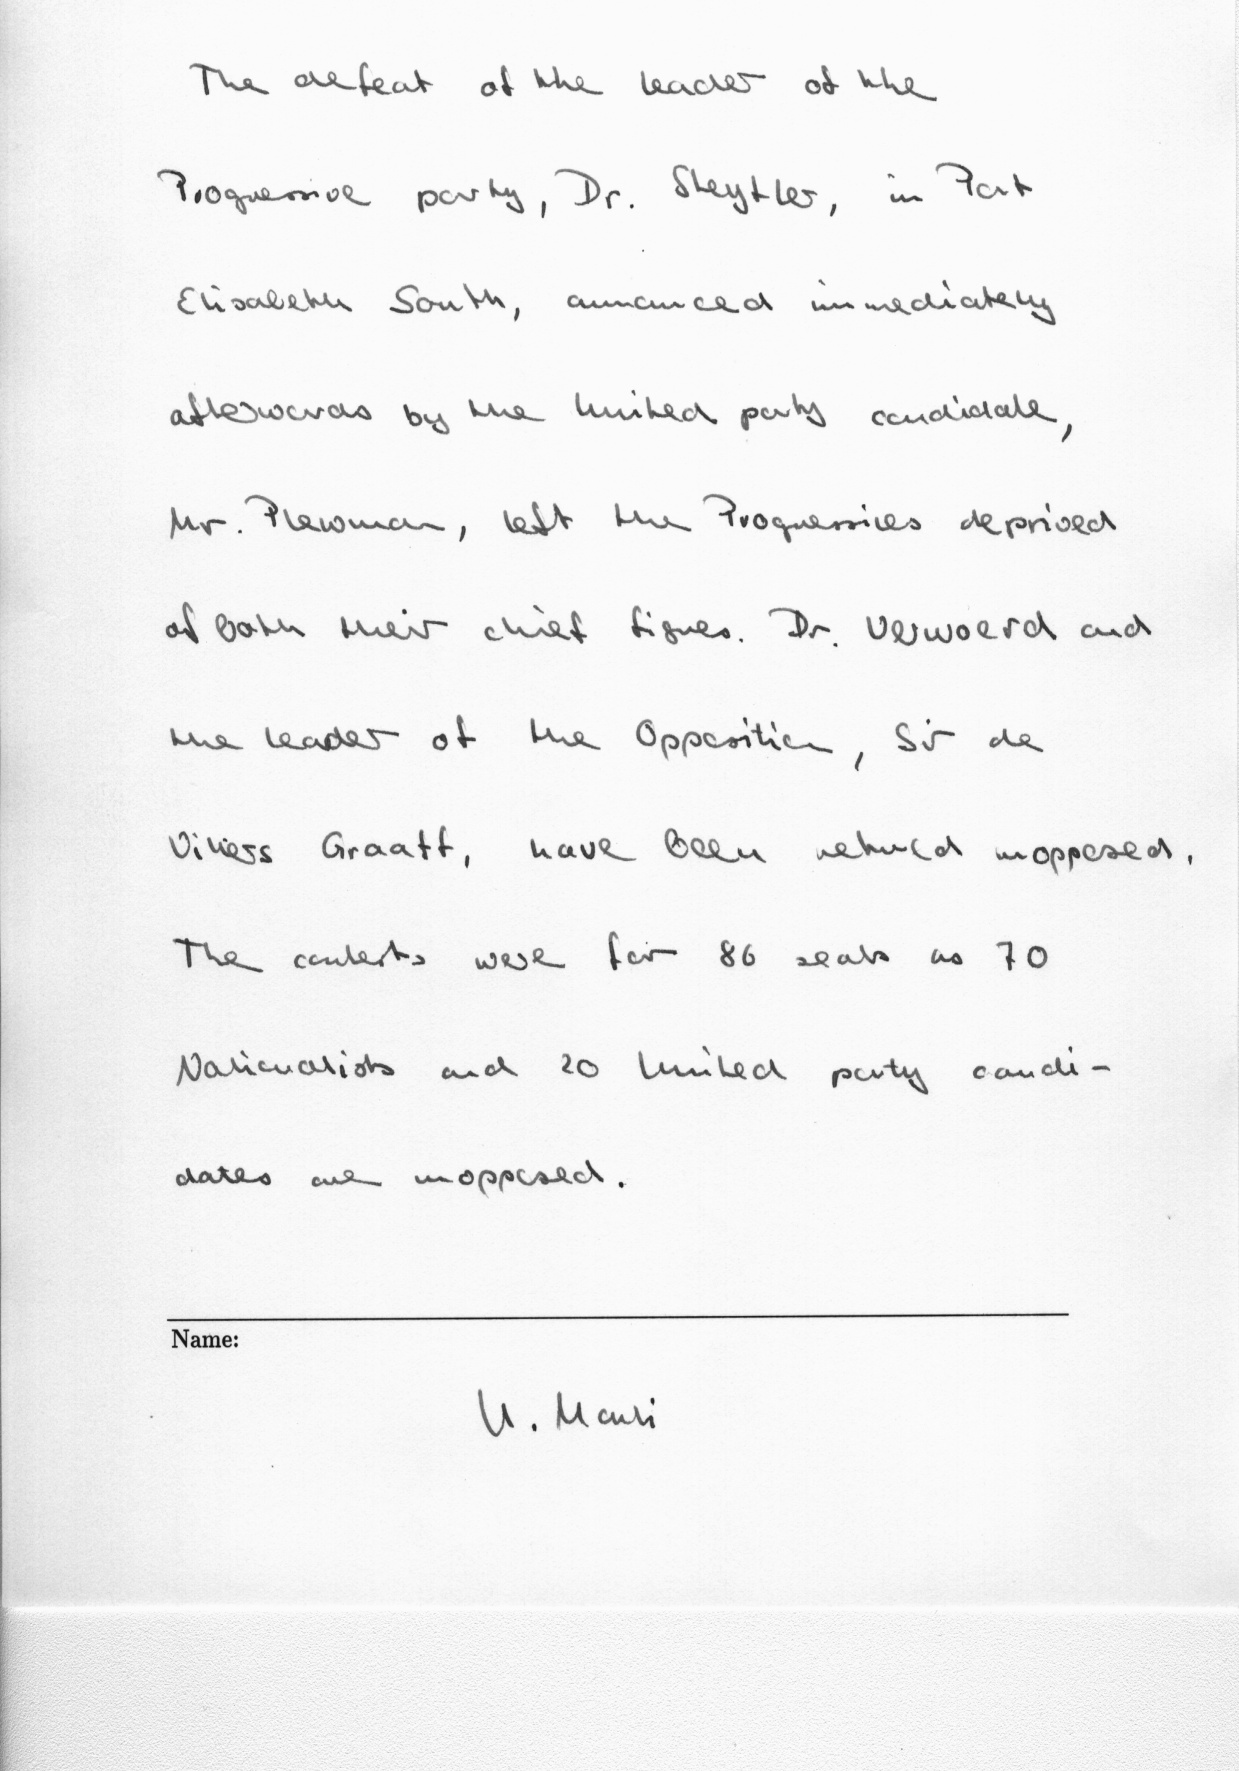 The defeat of the leader of the
Progressive party, Dr. Steytler, in Port
Elisabeth South, announced immediately
afterwards by the United party candidate,
Mr. Plewman, left the Progressives deprived
of both their chief figures. Dr. Verwoerd and
the leader of the Opposition, Sir de
Villiers Graaff, have been returned unopposed.
The contests were for 86 seats as 70
Nationalists and 20 United party candi-
dates are unopposed.
Name: